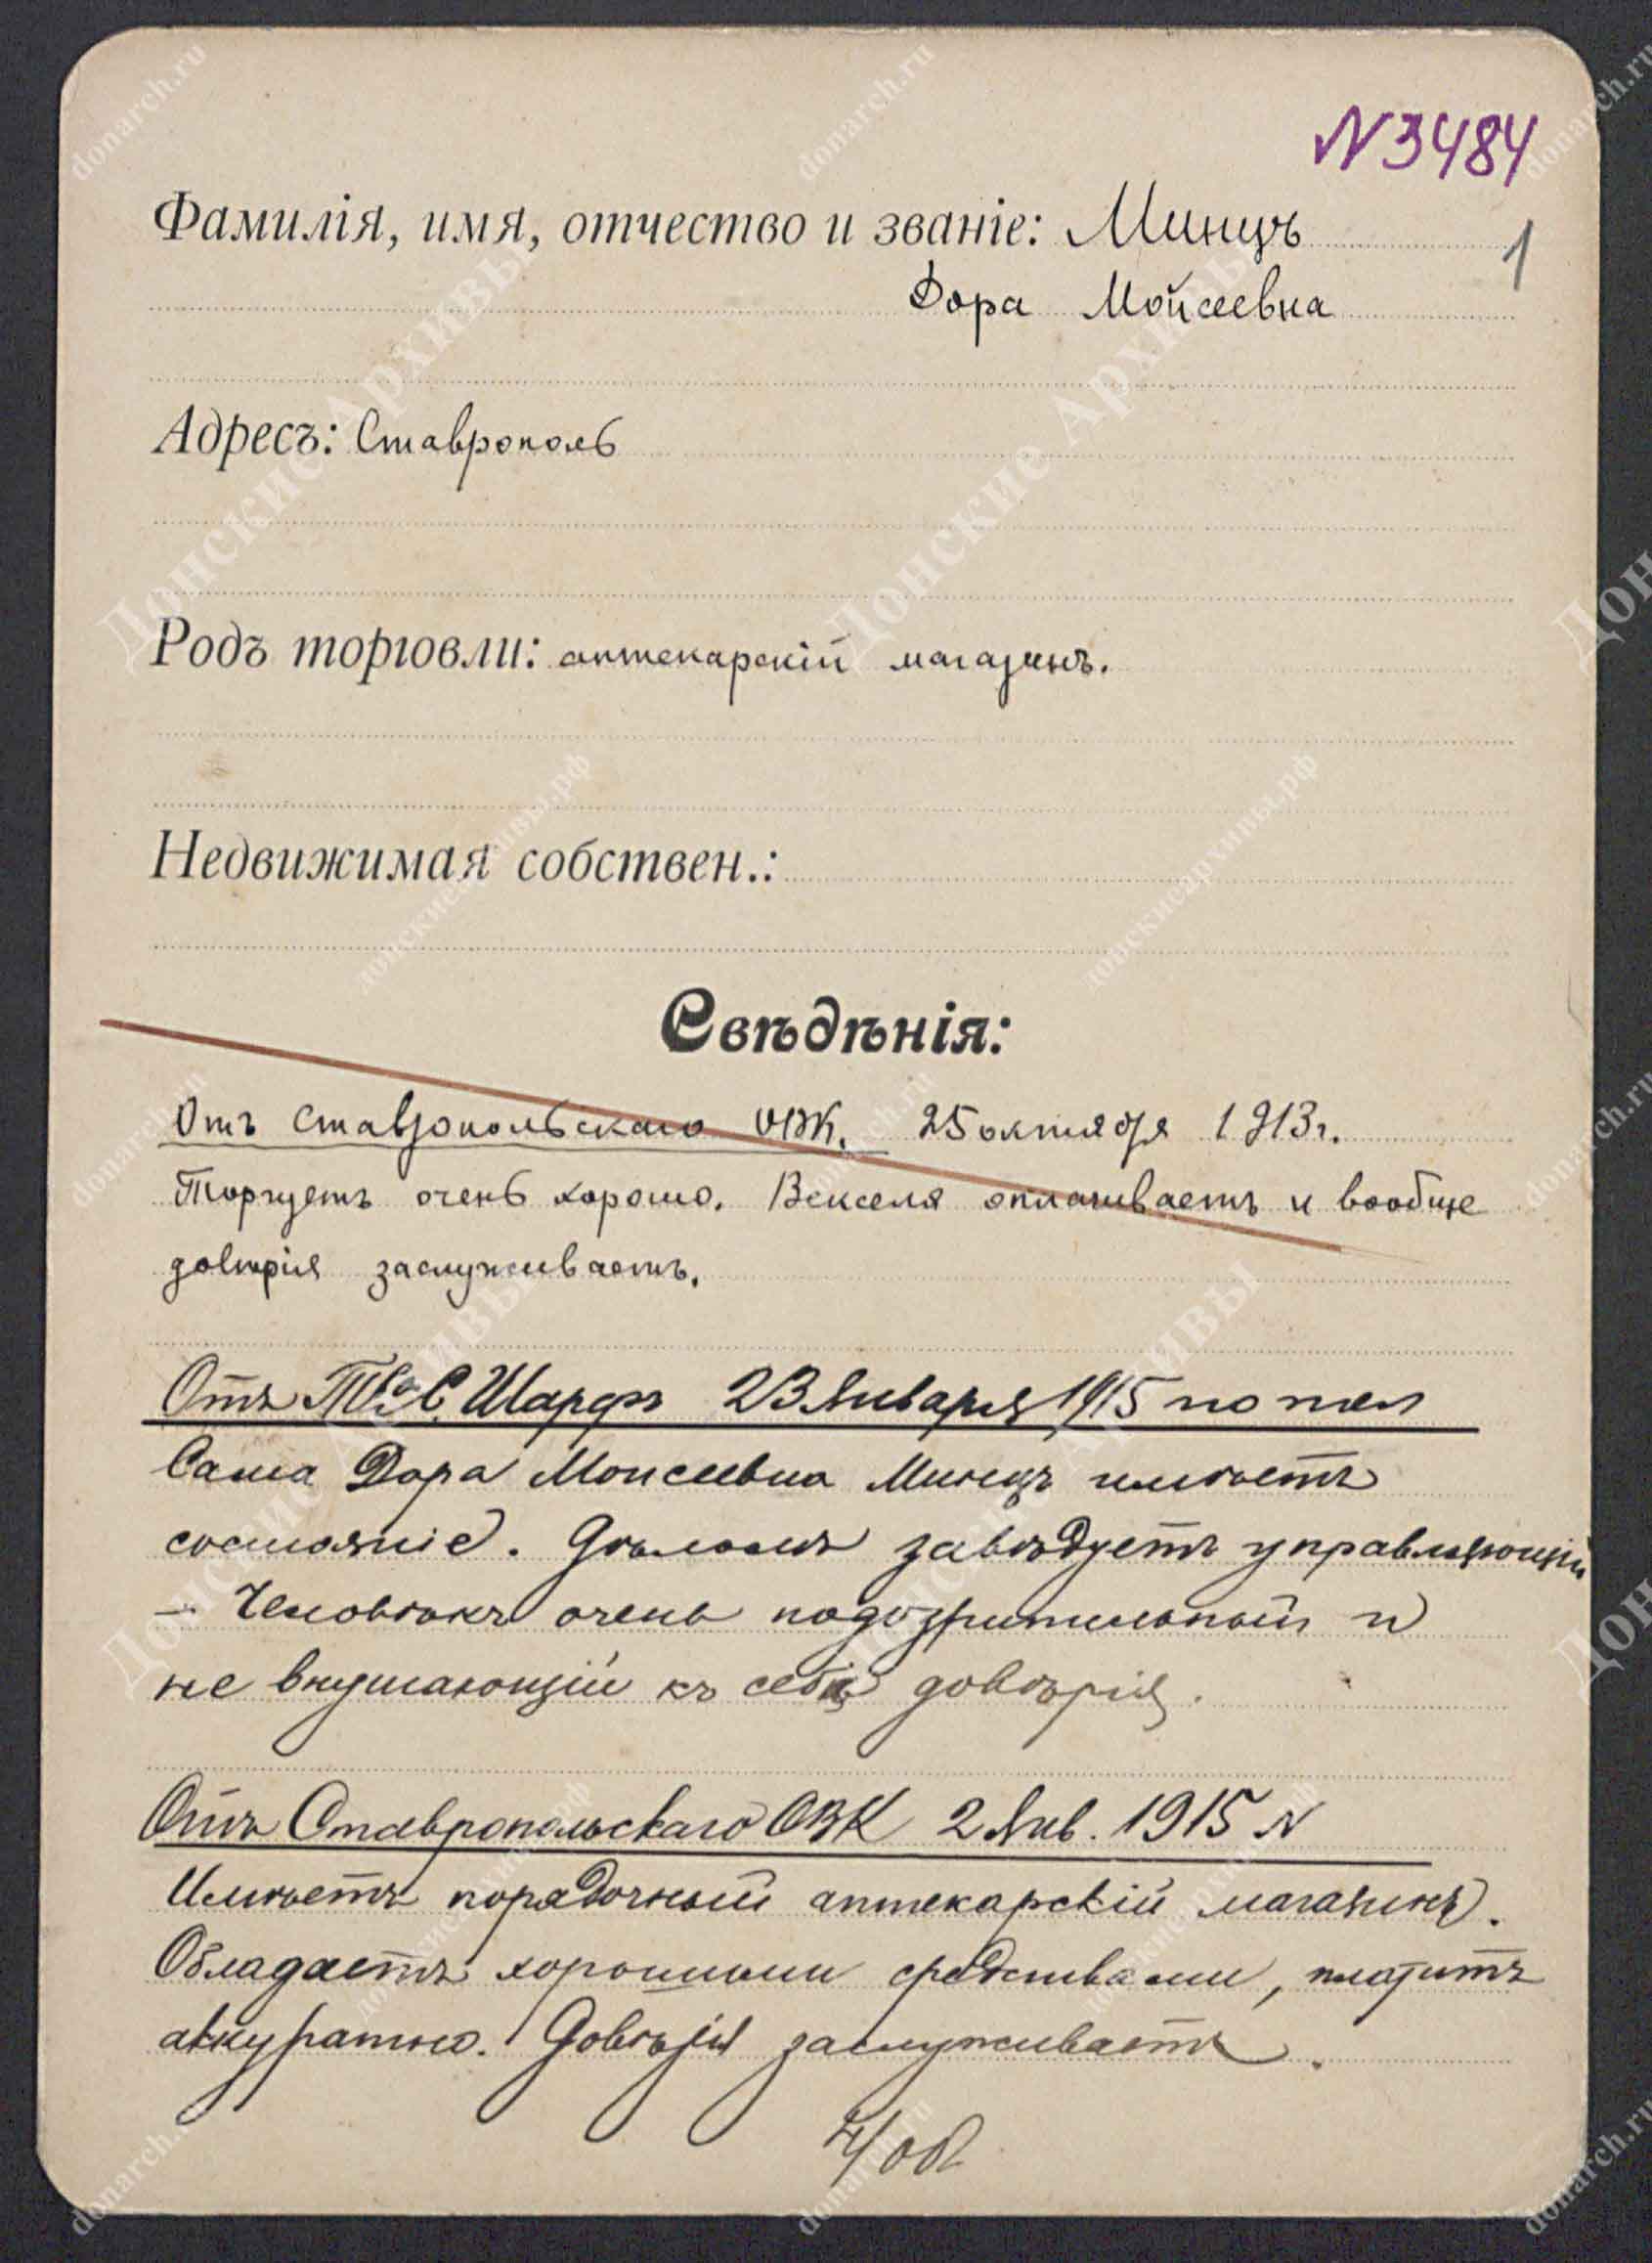 N3484
Фамилія, имя, отчество и званіе: Минцъ
1
Дора Мойсеевна
Адресъ: Ставрополь
Родъ торговли: аптекарскій магазинъ.
Недвижимая собствен.:
Свѣдѣнія:
Отъ Ставропольскаго ОВК. 25 октября 1913 г.
Торгуетъ очень хорошо. Векселя оплачиваетъ и вообще
довѣрія заслуживаетъ.
Отъ Т-ва С. Шарфъ 23 Января 1915 по тел
Сама Дора Моисеевна Минцъ имѣетъ
состояніе. Дѣломъ завѣдуетъ управляющій
– Человѣкъ очень подозрительный и
не внушающій къ себѣ довѣрія.
Отъ Ставропольскаго ОВК 2 Янв. 1915 N
Имѣетъ порядочный аптекарскій магазинъ.
Обладаетъ хорошими средствами, платитъ
аккуратно. Довѣрія заслуживаетъ.
/об
Донские Архивы
донскиеархивы.рф
donarch.ru